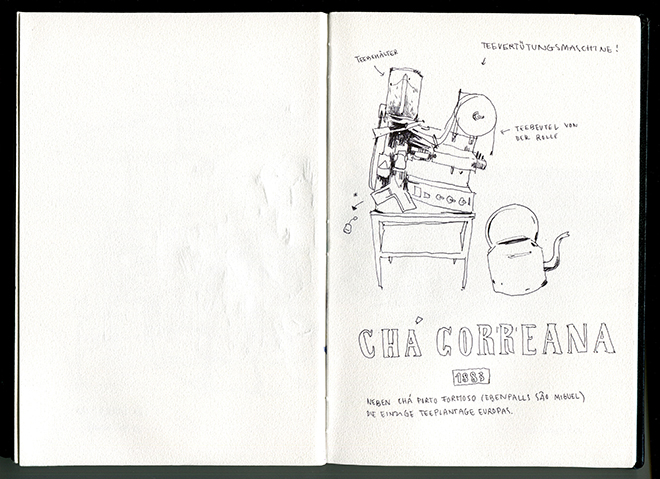 TEEBEHÄLTER
TEEVERTÜTUNGSMASCHINE!
TEEBEUTEL VON
DER ROLLE
CHÁ GORREANA
1883
NEBEN CHÁ PORTO FORMOSO (EBENFALLS SÃO MIGUEL)
DIE EINZIGE TEEPLANTAGE EUROPAS.